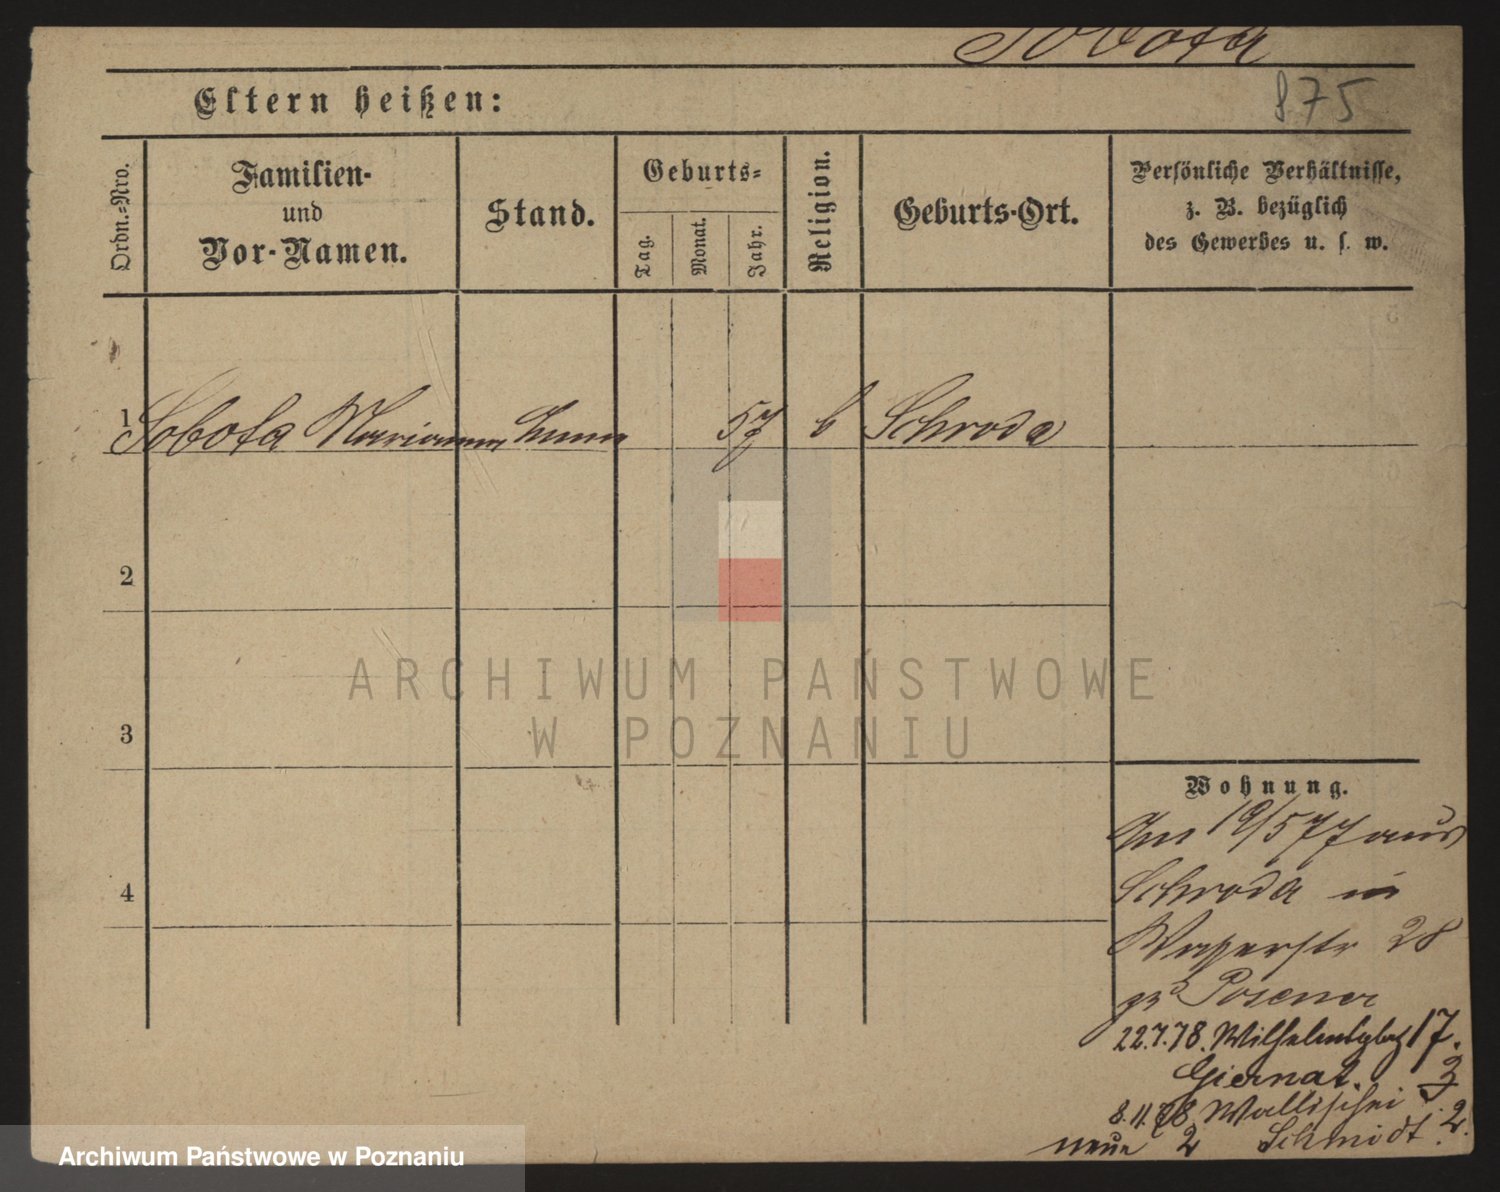 Sobota
875
Eltern heißen:
Ordn.-Nro.
Familien-
und
Vor-Namen.
Stand.
Geburts-
Tag.
Monat.
Jahr.
Religion.
Geburts-Ort.
Persönliche Verhältnisse,
z. B. bezüglich
des Gewerbes u. s. w.
1 Sobota Marianna 57 Schroda
2
3
4
ARCHIWUM PAŃSTWOWE
W POZNANIU
Wohnung.
19/5 77 aus
Schroda in
Wasserstr 28
Posener
22.7.78. Wilhelmsplatz 17.
Giernat. 3
8.11.78 Wallischei 2.
neue 2 Schmidt
Archiwum Państwowe w Poznaniu